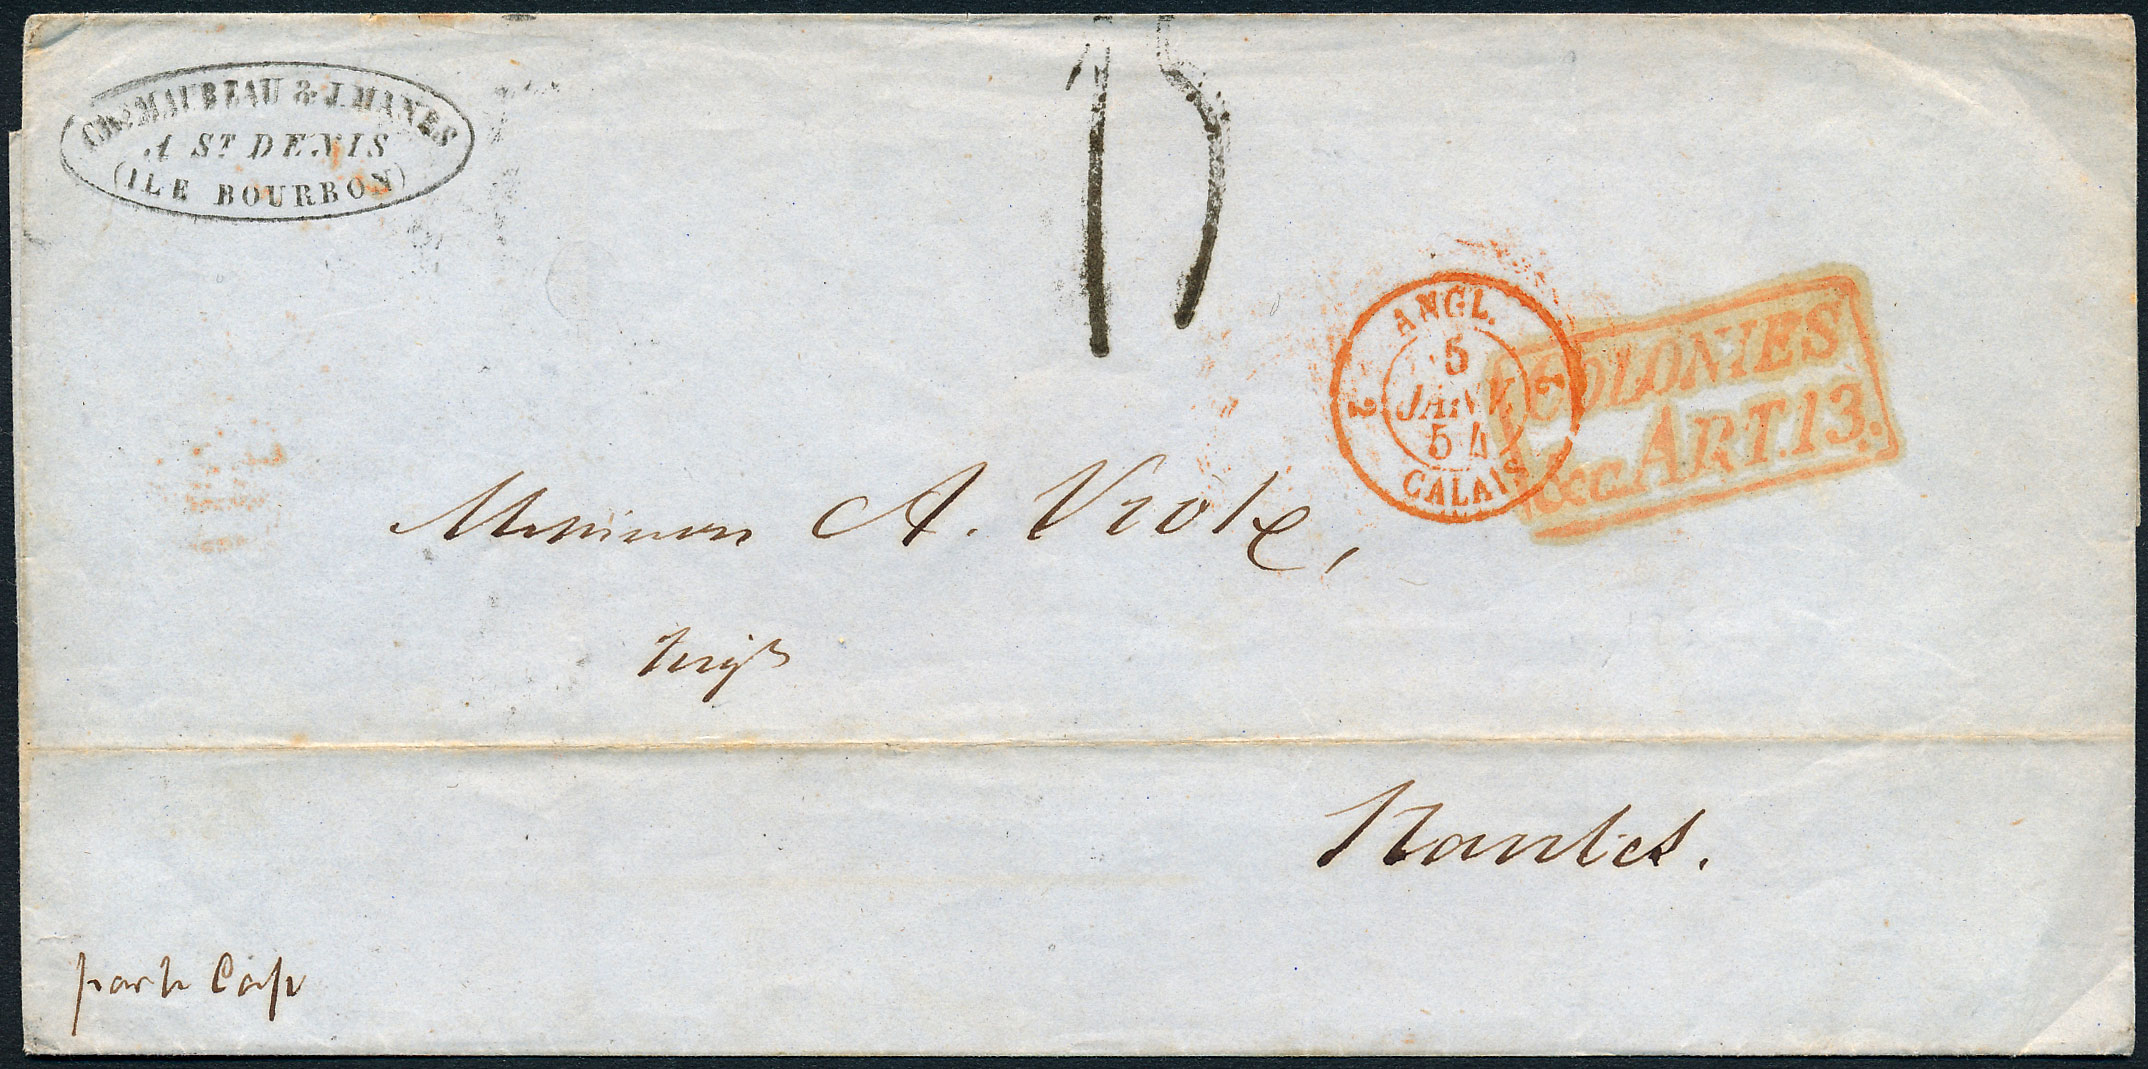 CH. MAUBEAU & J. MANES
A ST DENIS
(ILE BOURBON)
15
ANGL.
5
JANV.
54
CALAIS
2 2
COLONIES
&c. ART. 13.
Monsieur A. Viole,
Nantes.
par le Cap